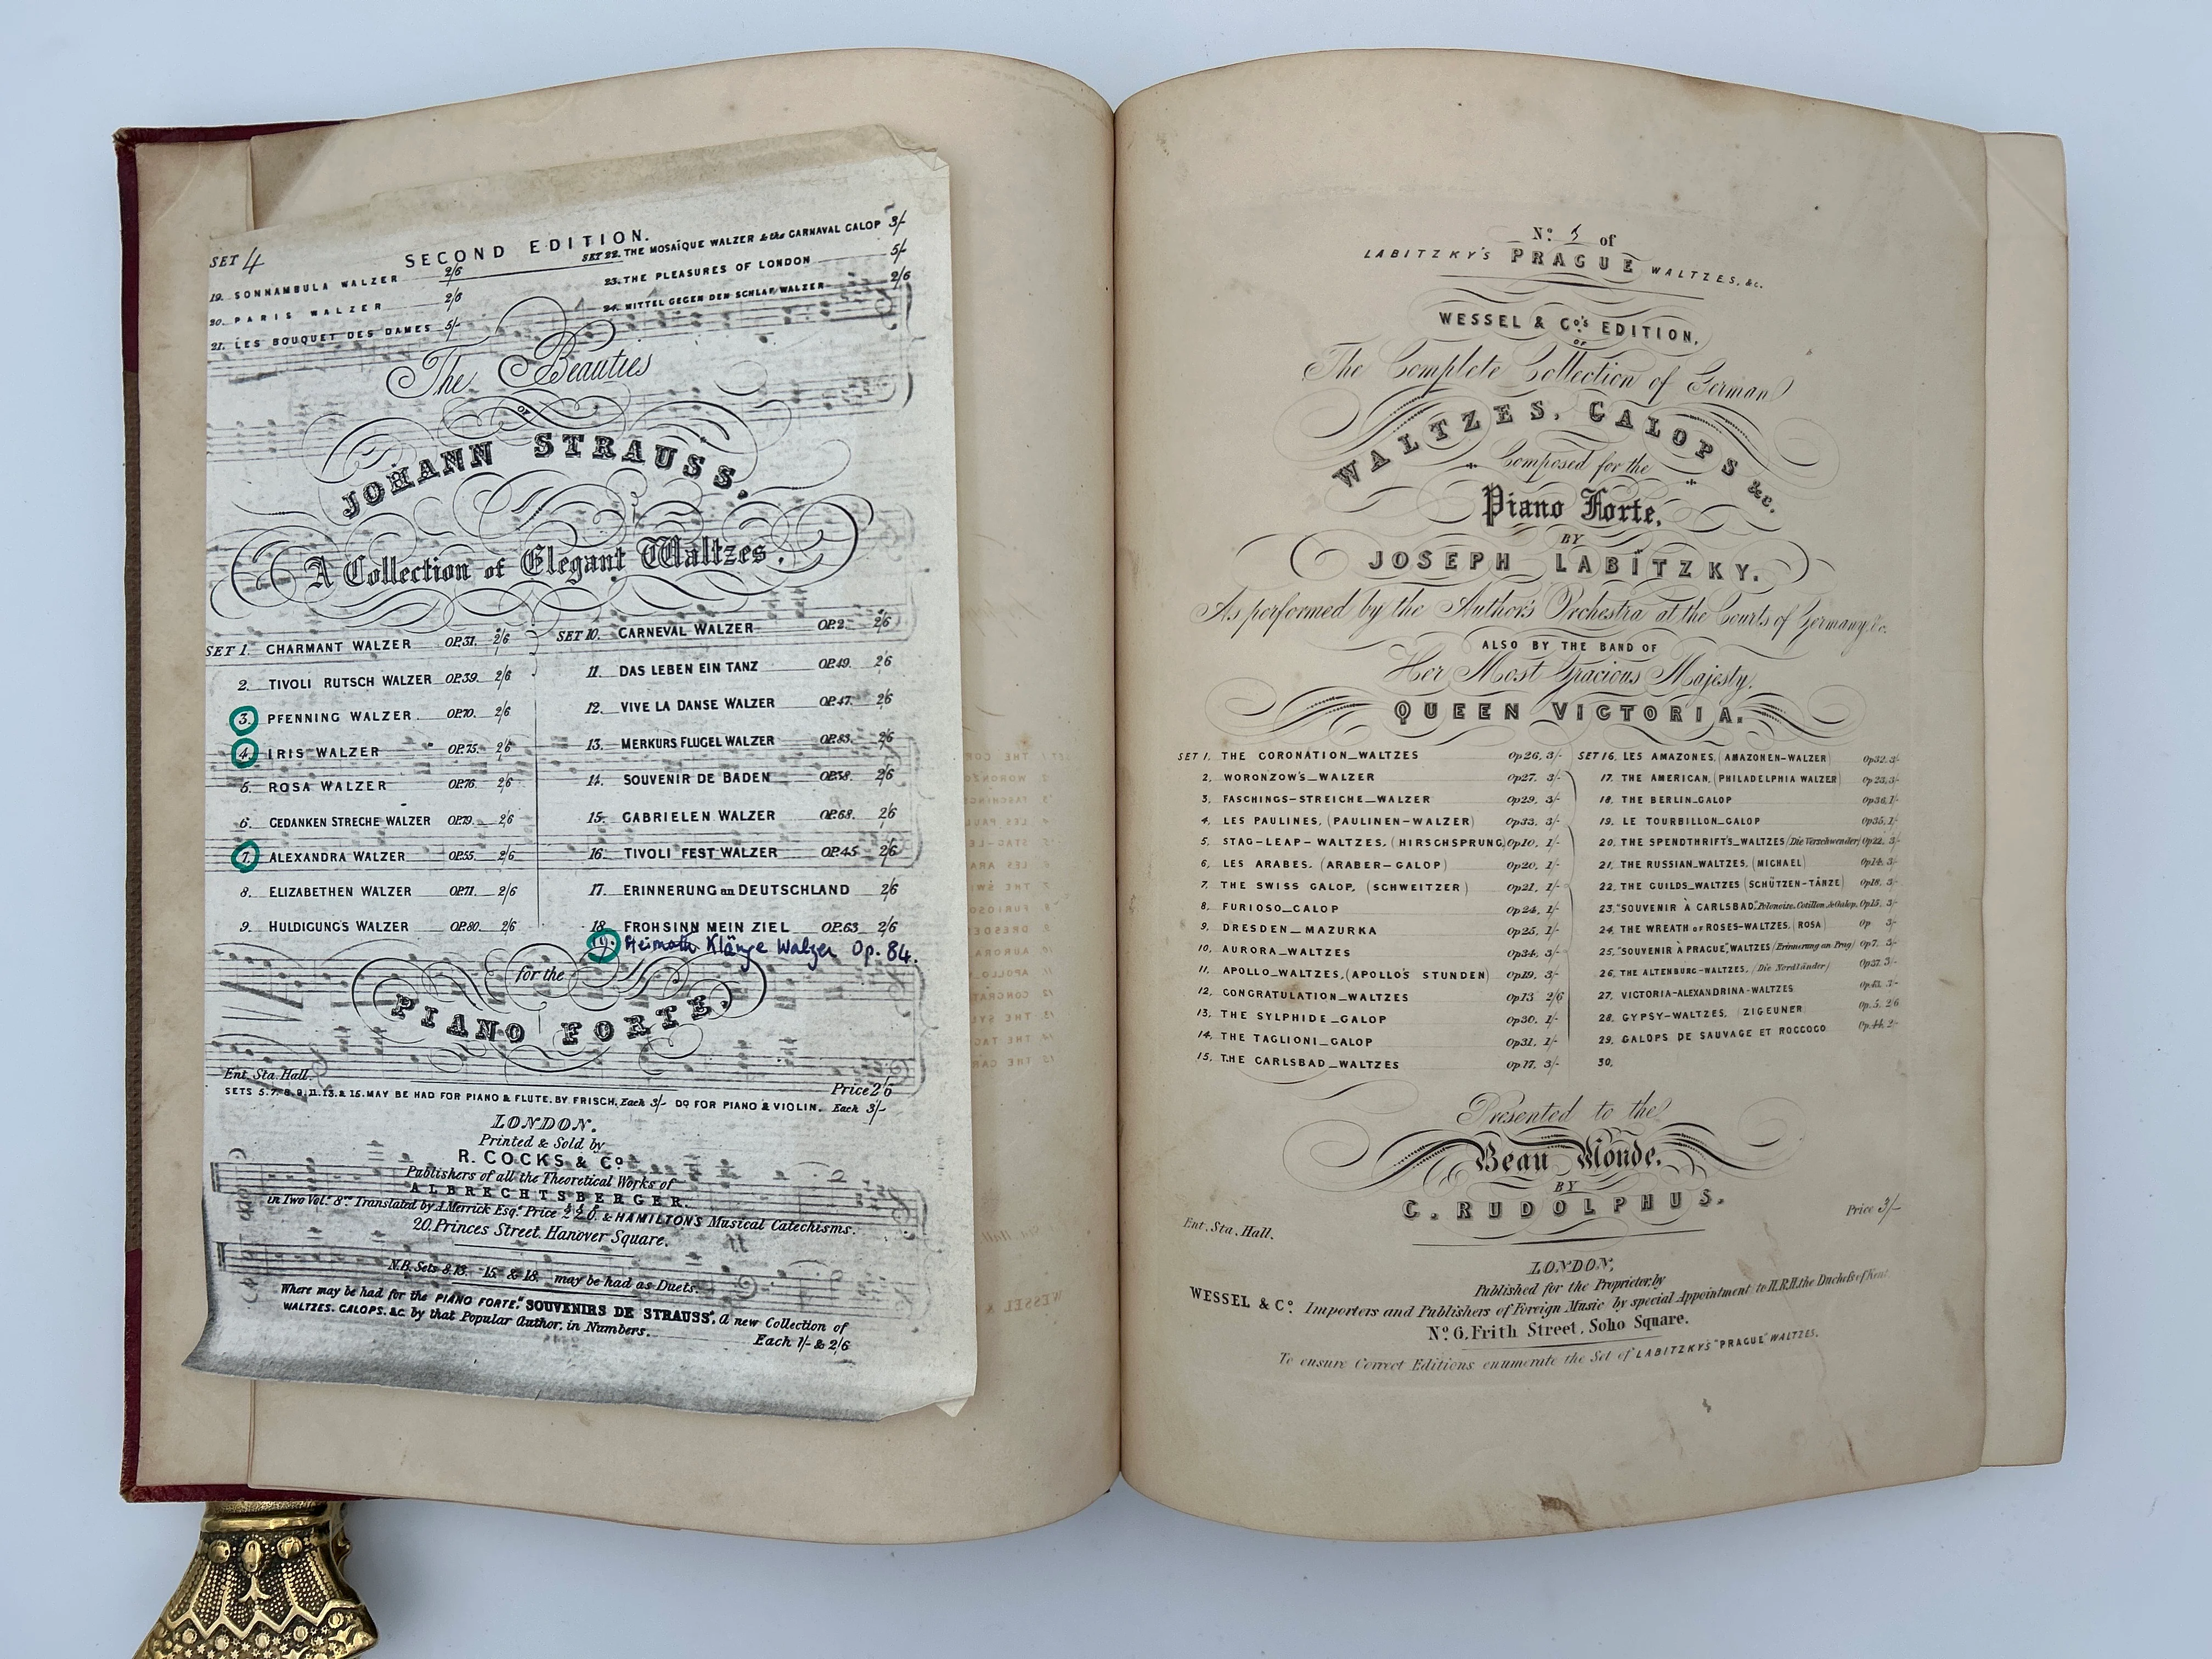 SET 4
SECOND EDITION.
19. SONNAMBULA WALZER 2/6
20. PARIS WALZER 2/6
21. LES BOUQUET DES DAMES 5/-
SET 22. THE MOSAÏQUE WALZER & the CARNAVAL GALOP 3/-
23. THE PLEASURES OF LONDON 5/-
24. MITTEL GEGEN DEN SCHLAF WALZER 2/6
The Beauties
OF
JOHANN STRAUSS.
A Collection of Elegant Waltzes.
SET 1. CHARMANT WALZER OP.31. 2/6
2. TIVOLI RUTSCH WALZER OP.39. 2/6
3. PFENNING WALZER. OP.70. 2/6
4. IRIS WALZER OP.75. 2/6
5. ROSA WALZER OP.76. 2/6
6. GEDANKEN STRECHE WALZER OP.79. 2/6
7. ALEXANDRA WALZER OP.55. 2/6
8. ELIZABETHEN WALZER OP.71. 2/6
9. HULDIGUNG'S WALZER OP.80. 2/6
SET 10. CARNEVAL WALZER OP.2. 2/6
11. DAS LEBEN EIN TANZ OP.49. 2/6
12. VIVE LA DANSE WALZER OP.47. 2/6
13. MERKURS FLUGEL WALZER OP.83. 2/6
14. SOUVENIR DE BADEN OP.38. 2/6
15. GABRIELEN WALZER OP.68. 2/6
16. TIVOLI FEST WALZER OP.45 2/6
17. ERINNERUNG an DEUTSCHLAND 2/6
18. FROHSINN MEIN ZIEL OP.63 2/6
19. Heimath Klänge Walzer Op. 84.
for the
PIANO FORTE.
Ent. Sta. Hall.
Price 2/6
SETS 5.7.8.9.11.13.& 15. MAY BE HAD FOR PIANO & FLUTE, BY FRISCH, Each 3/- Do FOR PIANO & VIOLIN. Each 3/-
LONDON.
Printed & Sold by
R. COCKS & Co.
Publishers of all the Theoretical Works of
ALBRECHTSBERGER,
in Two Vols. 8vo. Translated by A. Merrick Esqr. Price & HAMILTON'S Musical Catechisms.
20. Princes Street, Hanover Square.
N.B. Sets 8.13. 15. & 18. may be had as Duets.
Where may be had for the PIANO FORTE "SOUVENIRS DE STRAUSS", a new Collection of
WALTZES, GALOPS, &C. by that Popular Author, in Numbers.
Each 1/- & 2/6
No. 5 of
LABITZKY'S PRAGUE WALTZES, &c.
WESSEL & Co's EDITION,
OF
The Complete Collection of German
WALTZES, GALOPS &c.
Composed for the
Piano Forte,
BY
JOSEPH LABITZKY.
As performed by the Author's Orchestra at the Courts of Germany &c.
ALSO BY THE BAND OF
Her Most Gracious Majesty,
QUEEN VICTORIA.
SET 1, THE CORONATION_WALTZES Op26, 3/-
2, WORONZOW'S_WALZER Op27, 3/-
3, FASCHINGS-STREICHE_WALZER Op29, 3/-
4, LES PAULINES, (PAULINEN-WALZER) Op33, 3/-
5, STAG-LEAP-WALTZES, (HIRSCHSPRUNG) Op10, 1/-
6, LES ARABES, (ARABER-GALOP) Op20, 1/-
7, THE SWISS GALOP, (SCHWEITZER) Op21, 1/-
8, FURIOSO_GALOP Op24, 1/-
9, DRESDEN_MAZURKA Op25, 1/-
10, AURORA_WALTZES Op34, 3/-
11, APOLLO_WALTZES, (APOLLO'S STUNDEN) Op19, 3/-
12, CONGRATULATION_WALTZES Op13 2/6
13, THE SYLPHIDE_GALOP Op30, 1/-
14, THE TAGLIONI_GALOP Op31, 1/-
15, THE CARLSBAD_WALTZES Op17, 3/-
SET 16, LES AMAZONES, (AMAZONEN-WALZER) Op32, 3/-
17, THE AMERICAN, (PHILADELPHIA WALZER) Op23, 3/-
18, THE BERLIN_GALOP Op36, 1/-
19, LE TOURBILLON_GALOP Op35, 1/-
20, THE SPENDTHRIFT'S_WALTZES (Die Verschwender) Op22, 3/-
21, THE RUSSIAN_WALTZES, (MICHAEL) Op14, 3/-
22, THE GUILDS_WALTZES (SCHÜTZEN-TÄNZE) Op18, 3/-
23, "SOUVENIR À CARLSBAD", Polonoise, Cotillon, & Galop, Op15, 3/-
24, THE WREATH OF ROSES-WALTZES, (ROSA) Op 3/-
25, "SOUVENIR À PRAGUE", WALTZES (Erinnerung an Prag) Op7, 3/-
26, THE ALTENBURG-WALTZES, (Die Nordländer) Op37 3/-
27, VICTORIA-ALEXANDRINA-WALTZES Op43, 3/-
28, GYPSY-WALTZES, (ZIGEUNER Op. 5, 2/6
29, GALOPS DE SAUVAGE ET ROCCOCO Op.44, 2/-
30,
Presented to the
Beau Monde,
BY
C. RUDOLPHUS.
Ent. Sta. Hall.
Price 3/-
LONDON,
Published for the Proprietor, by
WESSEL & Co. Importers and Publishers of Foreign Music by special Appointment to H.R.H. the Duchess of Kent
No. 6, Frith Street, Soho Square.
To ensure Correct Editions enumerate the Set of LABITZKY'S "PRAGUE" WALTZES.